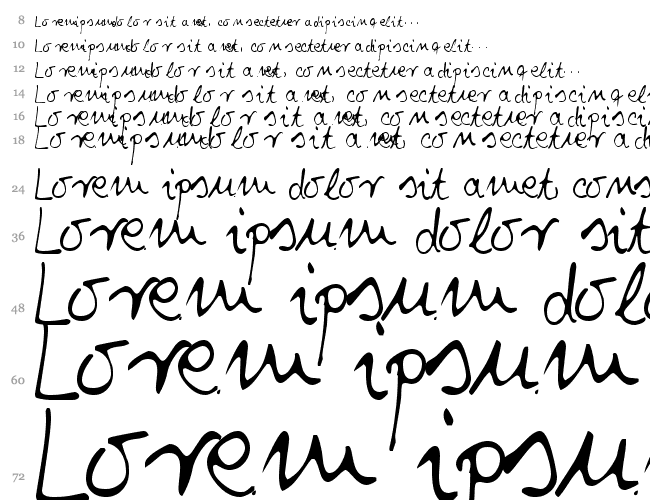 8 Lorem ipsum dolor sit amet, consectetuer adipiscing elit...
10 Lorem ipsum dolor sit amet, consectetuer adipiscing elit...
12 Lorem ipsum dolor sit amet, consectetuer adipiscing elit...
14 Lorem ipsum dolor sit amet, consectetuer adipiscing el
16 Lorem ipsum dolor sit amet, consectetuer adipisci
18 Lorem ipsum dolor sit amet, consectetuer ad
24 Lorem ipsum dolor sit amet cons
36 Lorem ipsum dolor sit
48 Lorem ipsum dol
60 Lorem ipsum
72 Lorem ipsu